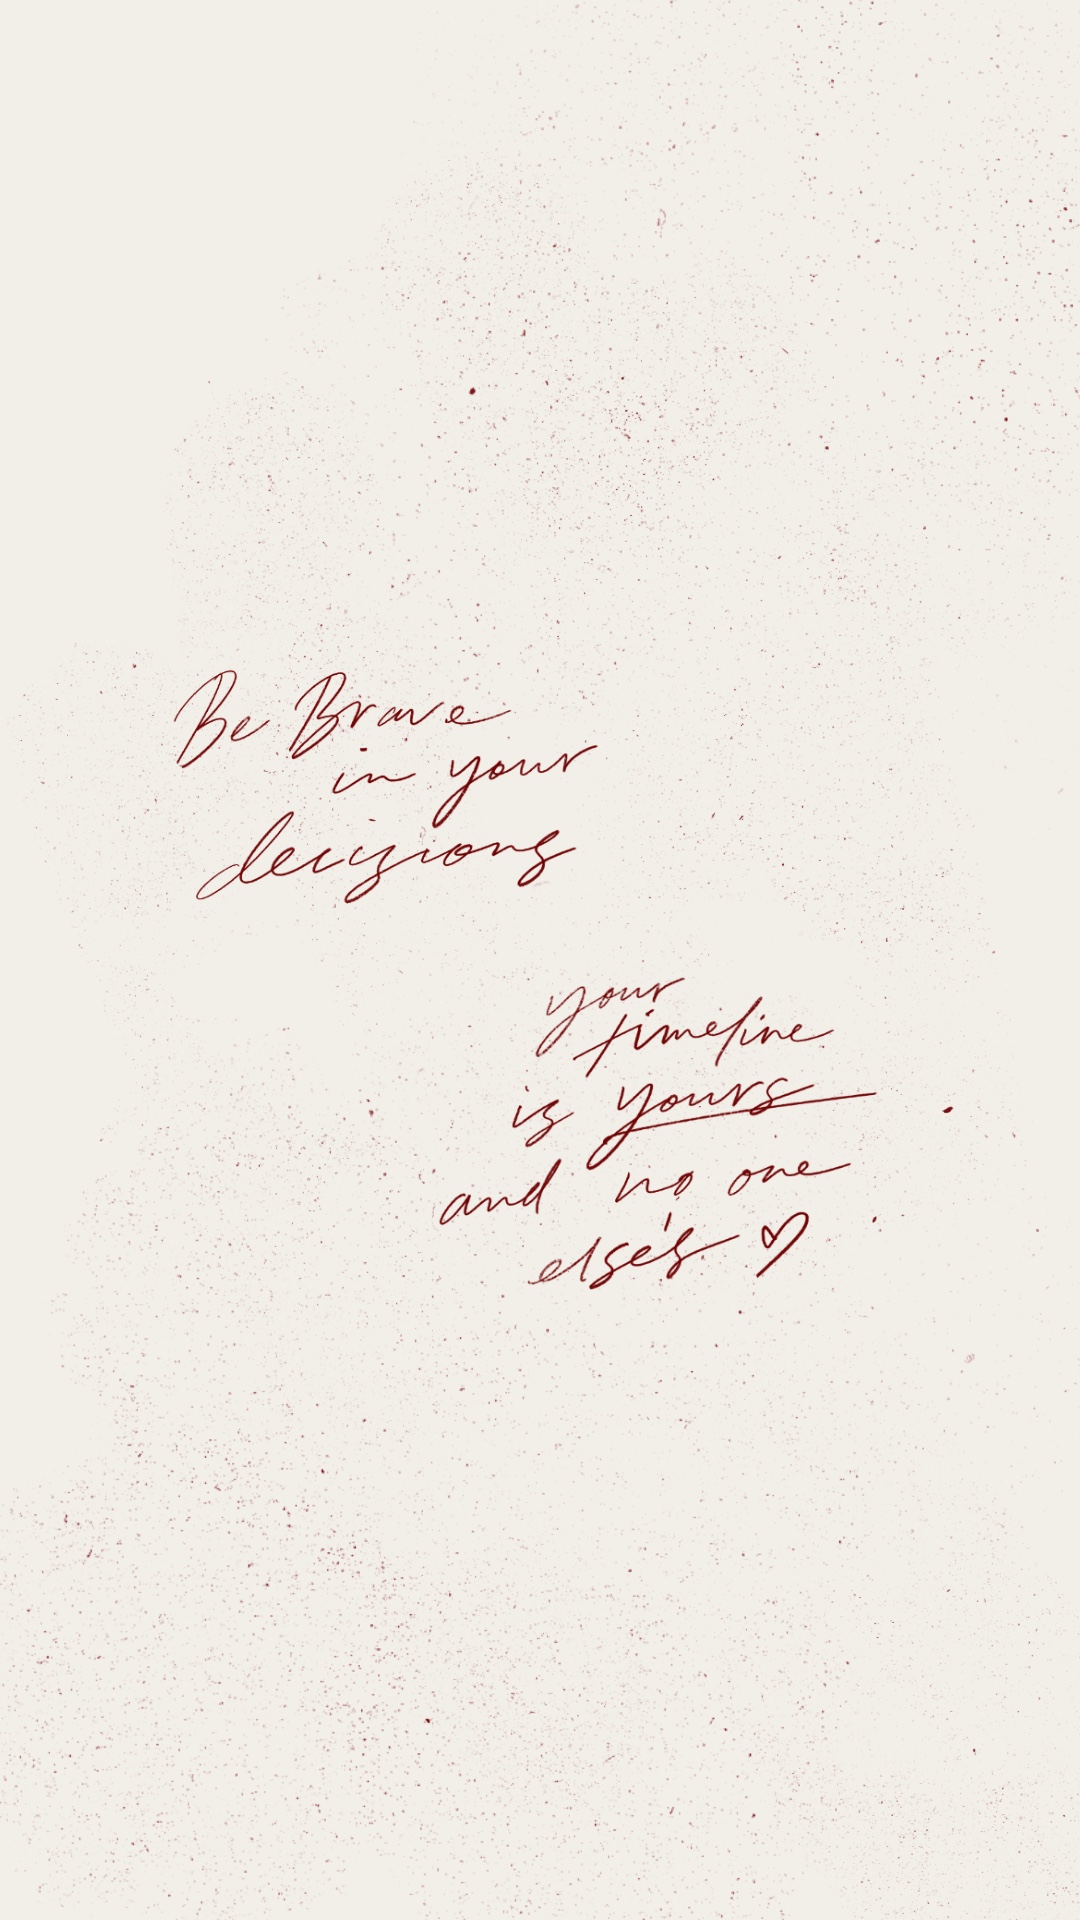 Be Brave
in your
decisions
your
timeline
is yours
and no one
else's ♡